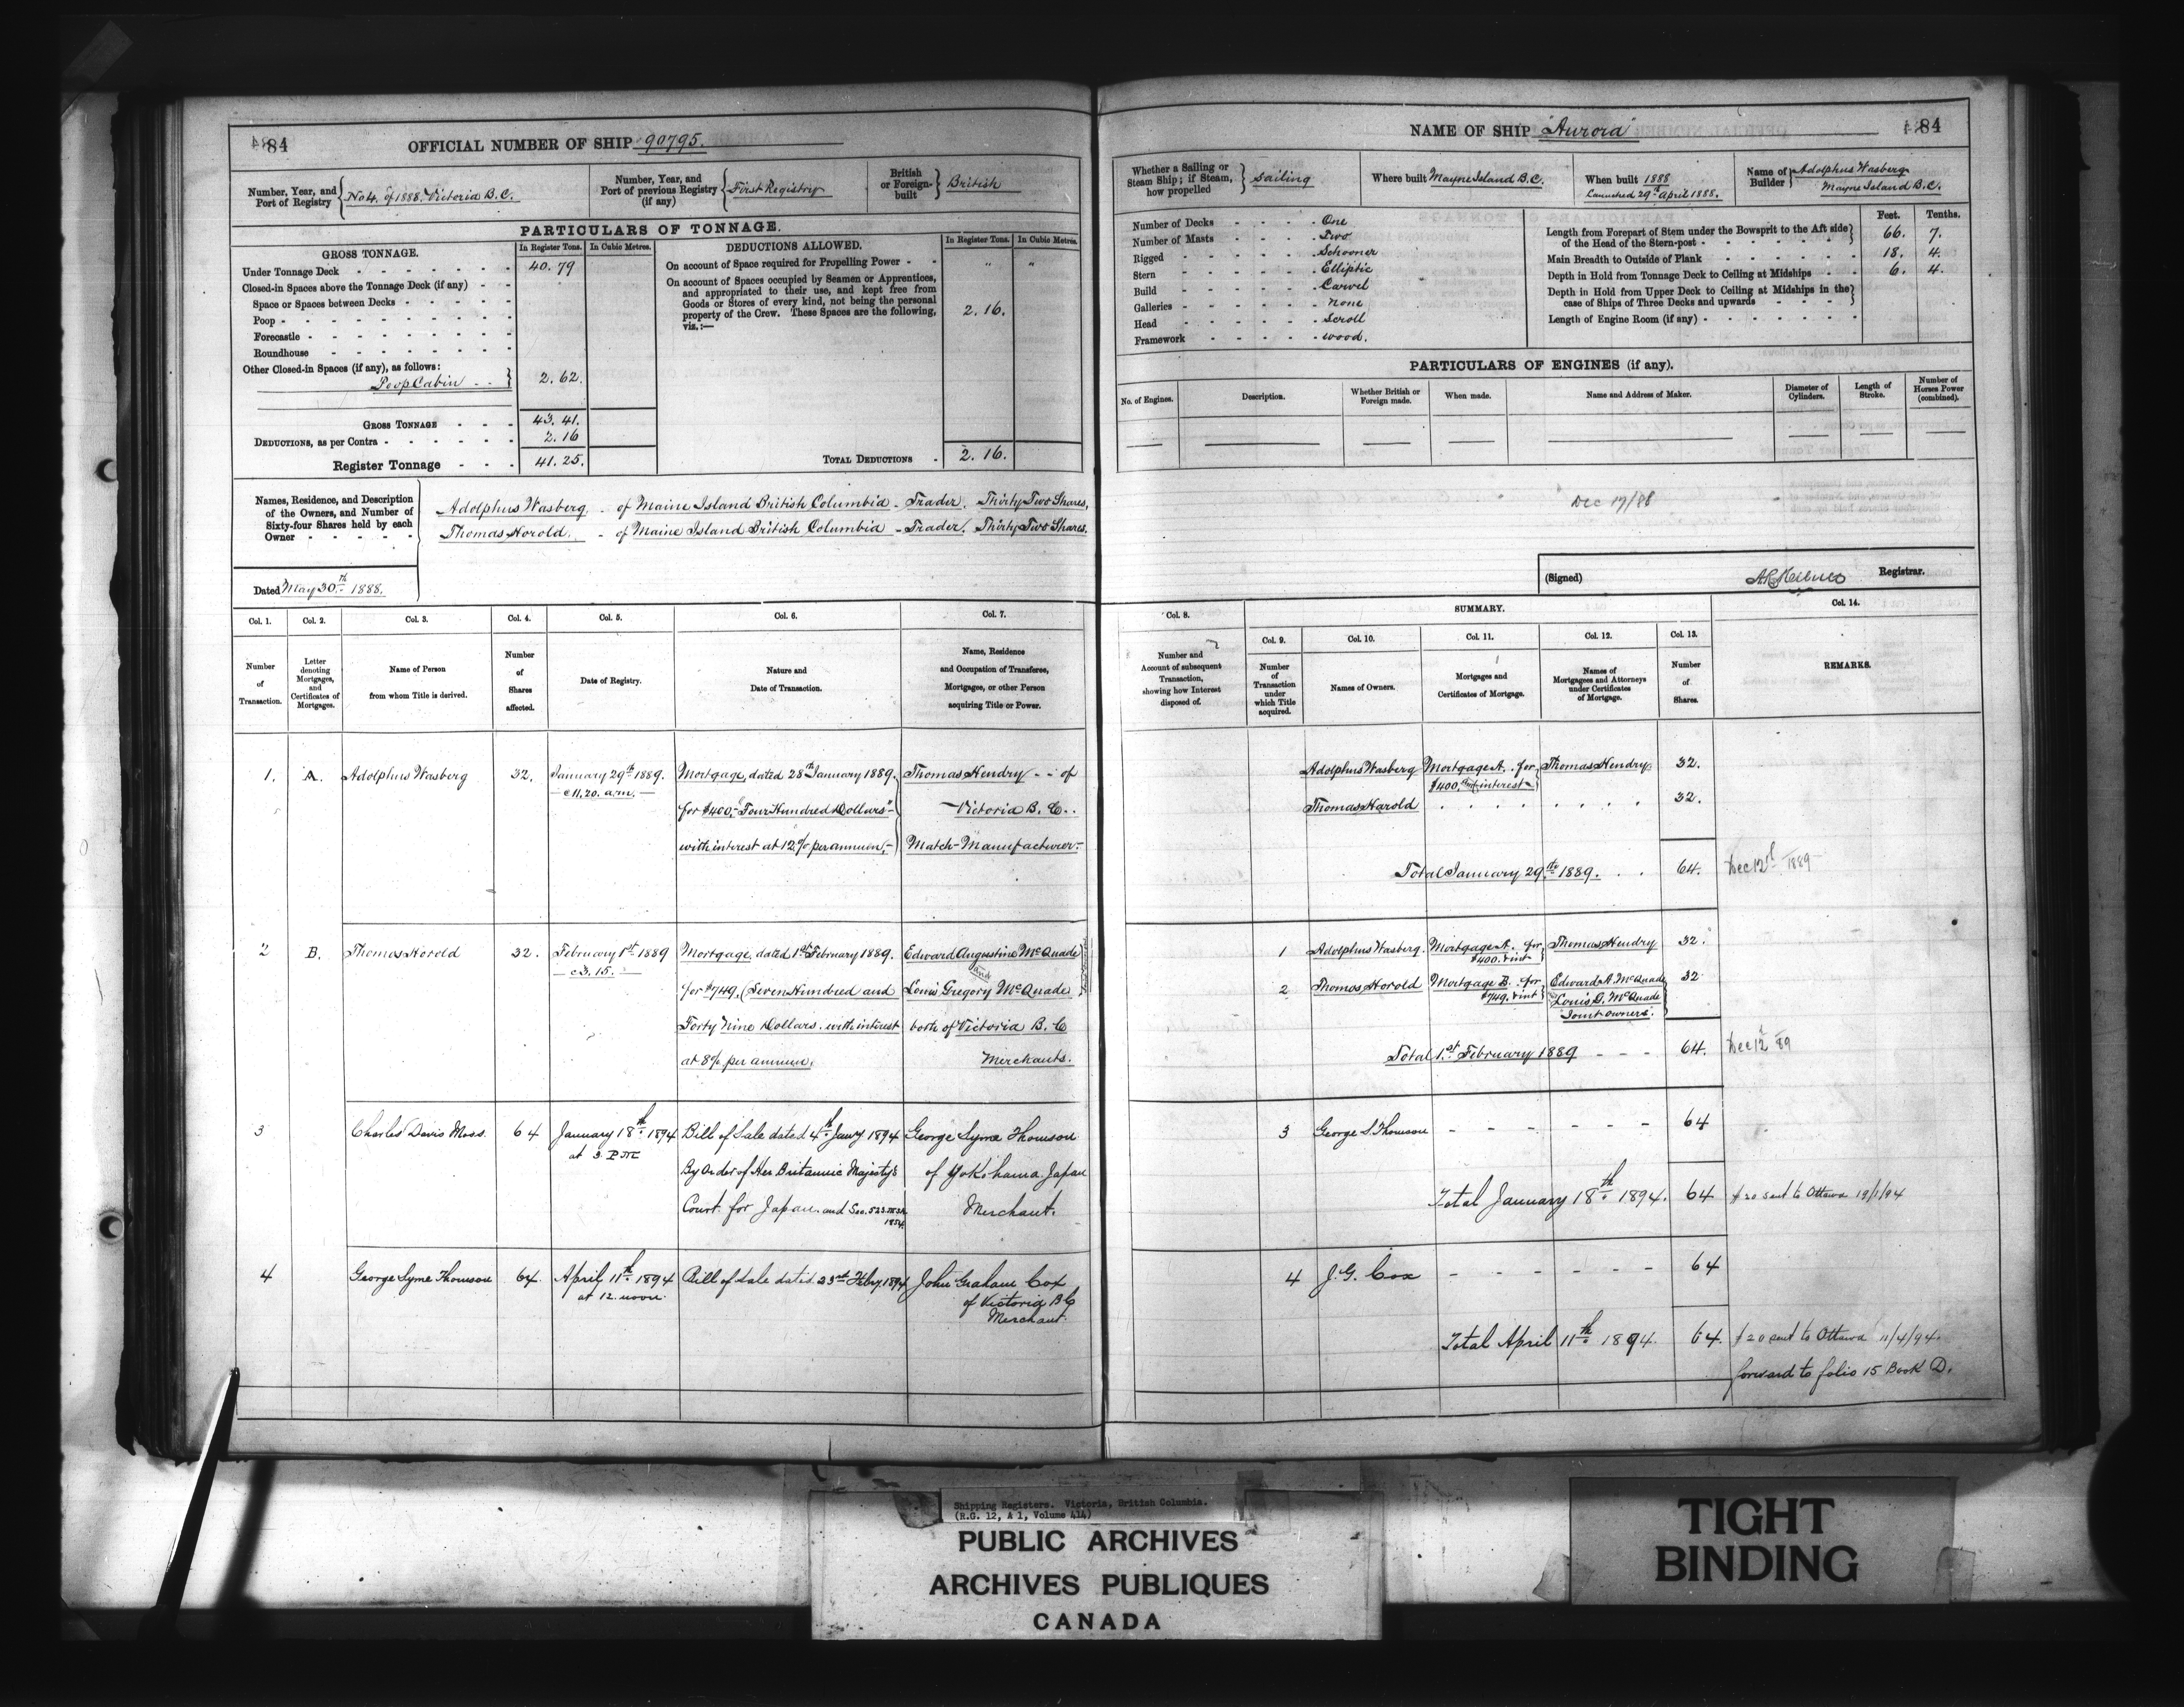 84
OFFICIAL NUMBER OF SHIP 90795.
Number, Year, and Port of Registry
No 4. of 1888. Victoria B.C.
Number, Year, and Port of previous Registry (if any)
First Registry
British or Foreign-built
British
PARTICULARS OF TONNAGE.
GROSS TONNAGE.
In Register Tons.
In Cubic Metres.
Under Tonnage Deck 40. 79
Closed-in Spaces above the Tonnage Deck (if any)
Space or Spaces between Decks
Poop
Forecastle
Roundhouse
Other Closed-in Spaces (if any), as follows:
Poop Cabin 2. 62.
GROSS TONNAGE 43. 41.
DEDUCTIONS, as per Contra 2. 16
Register Tonnage 41. 25.
DEDUCTIONS ALLOWED.
In Register Tons.
In Cubic Metres.
On account of Space required for Propelling Power " "
On account of Spaces occupied by Seamen or Apprentices,
and appropriated to their use, and kept free from
Goods or Stores of every kind, not being the personal
property of the Crew. These Spaces are the following,
viz.:—
2. 16.
TOTAL DEDUCTIONS 2. 16.
Names, Residence, and Description
of the Owners, and Number of
Sixty-four Shares held by each
Owner
Adolphus Wasberg. - of Maine Island British Columbia - Trader. Thirty Two Shares.
Thomas Horold. - of Maine Island British Columbia - Trader. Thirty Two Shares.
Dated May 30th 1888.
Col. 1.
Col. 2.
Col. 3.
Col. 4.
Col. 5.
Col. 6.
Col. 7.
Number of Transaction.
Letter denoting Mortgages, and Certificates of Mortgages.
Name of Person from whom Title is derived.
Number of Shares affected.
Date of Registry.
Nature and Date of Transaction.
Name, Residence and Occupation of Transferee, Mortgagee, or other Person acquiring Title or Power.
1. A. Adolphus Wasberg 32. January 29th 1889. Mortgage, dated 28th January 1889. Thomas Hendry - - of
@ 11.20. a.m.
for $400,- "Four Hundred Dollars" Victoria B.C..
with interest at 12% per annum,- Match-Manufacturer-
2 B. Thomas Horold 32. February 1st 1889 Mortgage, dated 1st February 1889. Edward Augustine McQuade
@ 3.15. and
for $749, (Seven Hundred and Louis Gregory McQuade
Forty Nine Dollars. with interest both of Victoria B.C
at 8% per annum. Merchants.
3 Charles Davis Moss. 64 January 18th 1894 Bill of Sale dated 4th Jany 1894 George Syme Thomson
at 3 PM
By Order of Her Britannic Majesty's of Yokohama Japan
Court for Japan. and Sec. 523 MSA Merchant.
1854.
4 George Syme Thomson 64. April 11th 1894 Bill of Sale dated 23rd Feby 1894 John Graham Cox
at 12. noon. of Victoria BC
Merchant.
84
NAME OF SHIP "Aurora"
Whether a Sailing or Steam Ship; if Steam, how propelled
Sailing
Where built Mayne Island B.C.
When built 1888
Launched 29th April 1888.
Name of Builder
Adolphus Wasberg
Mayne Island B.C.
Number of Decks One
Number of Masts Two
Rigged Schooner
Stern Elliptic
Build Carvel
Galleries None
Head Scroll
Framework wood.
Feet. Tenths.
Length from Forepart of Stem under the Bowsprit to the Aft side
of the Head of the Stern-post 66. 7.
Main Breadth to Outside of Plank 18. 4.
Depth in Hold from Tonnage Deck to Ceiling at Midships 6. 4.
Depth in Hold from Upper Deck to Ceiling at Midships in the
case of Ships of Three Decks and upwards
Length of Engine Room (if any)
PARTICULARS OF ENGINES (if any).
No. of Engines.
Description.
Whether British or Foreign made.
When made.
Name and Address of Maker.
Diameter of Cylinders.
Length of Stroke.
Number of Horses Power (combined).
Dec 17/88
(Signed) Registrar.
Col. 8.
SUMMARY.
Col. 14.
Col. 9.
Col. 10.
Col. 11.
Col. 12.
Col. 13.
Number and Account of subsequent Transaction, showing how Interest disposed of.
Number of Transaction under which Title acquired.
Names of Owners.
Mortgages and Certificates of Mortgage.
Names of Mortgagees and Attorneys under Certificates of Mortgage.
Number of Shares.
REMARKS.
Adolphus Wasberg Mortgage A. for Thomas Hendry 32.
$400. and interest
Thomas Harold 32.
Total January 29th 1889. 64. Dec 12th 1889
1 Adolphus Wasberg. Mortgage A. for Thomas Hendry 32.
$400. & int
2 Thomas Horold Mortgage B. for Edward A. McQuade 32
$749. & int Louis G. McQuade
Joint owners.
Total 1st February 1889 64. Dec 12 89
3 George S. Thomson 64
Total January 18th 1894. 64 20 sent to Ottawa 19/1/94
4 J. G. Cox 64
Total April 11th 1894. 64. 20 sent to Ottawa 11/4/94.
forward to folio 15 Book D.
Shipping Registers. Victoria, British Columbia.
(R.G. 12, A 1, Volume 414)
PUBLIC ARCHIVES
ARCHIVES PUBLIQUES
CANADA
TIGHT
BINDING